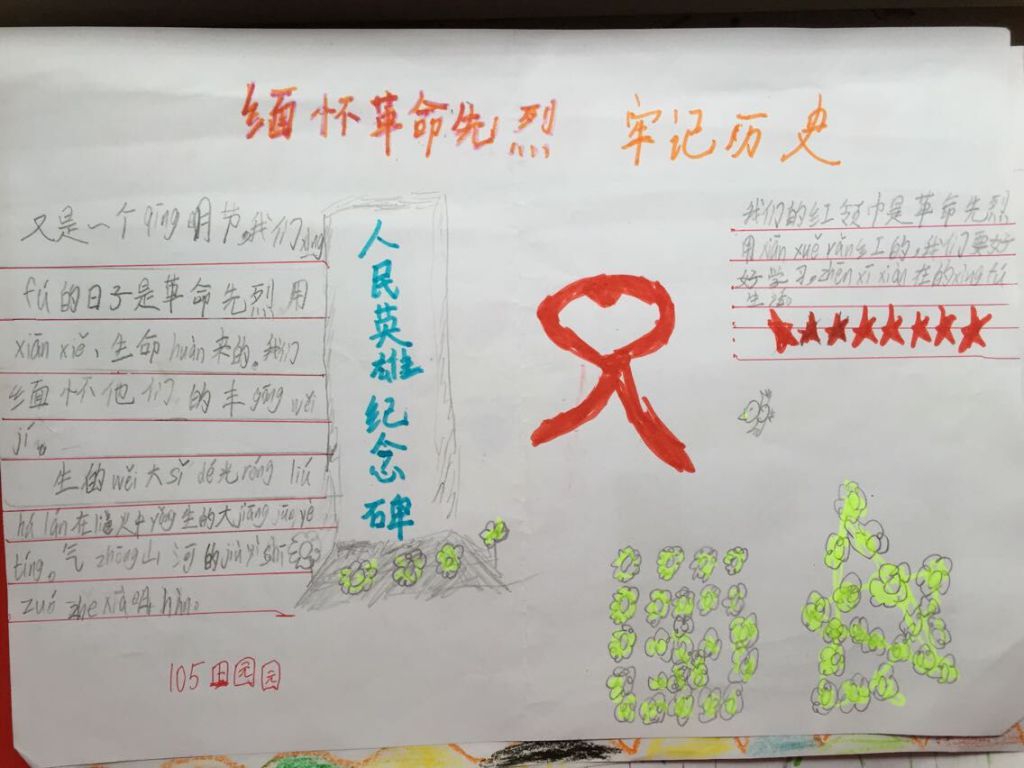 缅怀革命先烈 牢记历史
又是一个qīng明节。我们xìng
fú的日子是革命先烈用
xiān xiě、生命huàn来的。我们
缅怀他们的丰gōng wěi
jī。
生的wěi大sǐ dé光róng liú
há lán在liè火中yǒng生的大jiāng jūn yè
tíng。气zhōng山河的jiā yì shī
zuó zhe xià
人民英雄纪念碑
我们的红领巾是革命先烈
用xiān xuě rǎn红的,我们要好
好学习。zhēn xī xiàn在的xìng fú
生活
105田园园